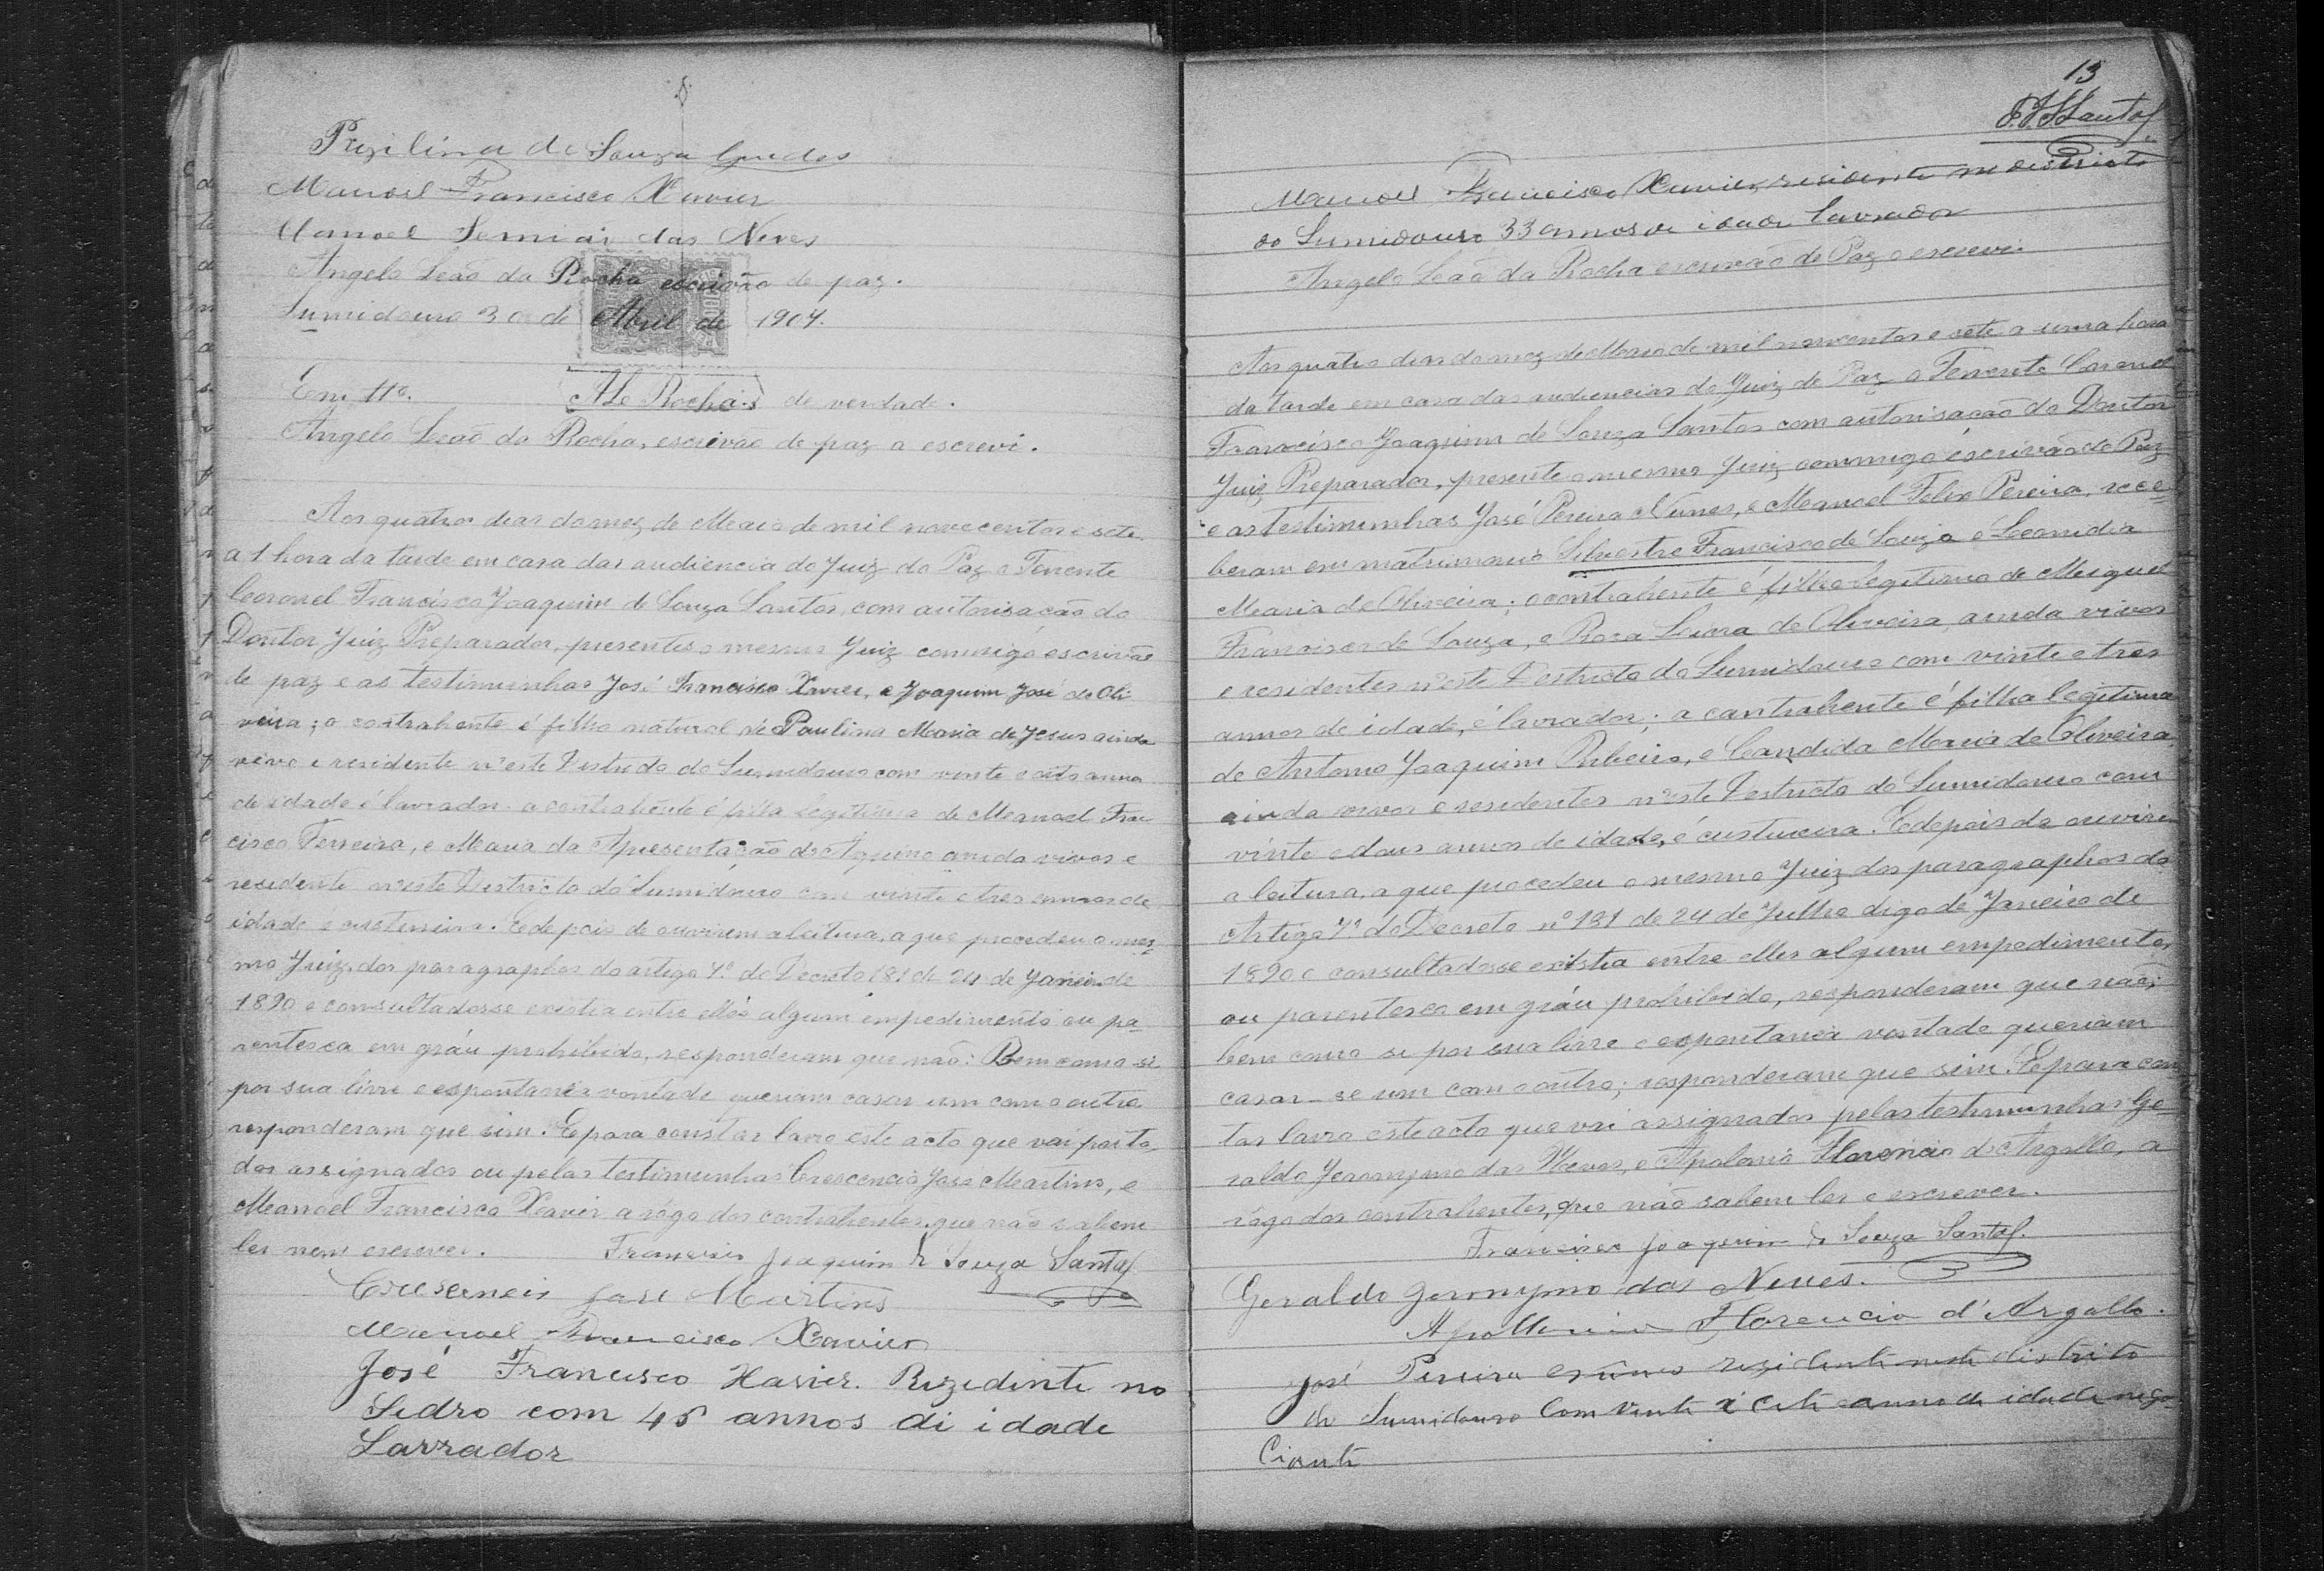 Prezilina de Souza Guedes
Manoel Francisco Xavier
Manoel das Neves
Angelo Leão da Rocha escrivão de paz.
Sumidouro 30 de Abril de 1907.
Em tto. ALe Rocha de verdade.
Angelo Leão da Rocha, escrivão de paz a escrevi.
Aos quatro dias do mez de Maio de mil nove centos e sete
a 1 hora da tarde em casa das audiencia do Juiz de Paz o Tenente
Coronel Francisco Joaquim de Souza Santos, com autorisação do
Doutor Juiz Preparador, presente o mesmo Juiz commigo escrivão
de paz e as testimunhas José Francisco Xavier, e Joaquim José de Oli-
veira; o contrahente é filho natural de Paulina Maria de Jesus ainda
viva e residente n'este Destricto do Sumidouro com vinte e oito annos
de idade é lavrador. a contrahente é filha legitima de Manoel Fran
cisco Ferreira, e Maria da Apresentação de Aquino ainda vivos e
residente n'este Destricto do Sumidouro com vinte e tres annos de
idade e custureira. E depois de ouvirem a leitura, a que procedeu o mes-
mo Juiz, dos paragraphos do artigo 7º do Decreto 181 de 24 de Janeiro de
1890 e consultados se existia entre elles algum impedimento ou pa-
rentesco em gráu prohibido, responderam que não: Bem como si
por sua livre e espontania vontade queriam casar um com o outro
responderam que sim. E para constar lavro este acto que vai por to-
dos assignados ou pelas testimunhas Crescencio José Martins, e
Manoel Francisco Xavier a rógo dos contrahentes, que não sabem
ler nem escrever. Francisco Joaquim de Souza Santos
Cresencio José Martins
Manoel Francisco Xavier
José Francisco Xavier. Rezidinte no
Sedro com 45 annos di idade
Larrador
13
F.J.S.Santos
Manoel Francisco Xavier, residente no destricto
do Sumidouro 33 annos de idade lavrador
Angelo Leão da Rocha escrivão de Paz o escrevi.
Aos quatro dias do mez de Maio de mil novecentos e sete a uma hora
da tarde em casa das audiencias do Juiz de Paz o Tenente Coronel
Francisco Joaquim de Souza Santos com autorisação do Doutor
Juiz Preparador, presente o mesmo Juiz commigo escrivão de Paz
e as testimunhas José Pereira Nunes, e Manoel Felix Pereira, rece-
beram em matrimonio Silvestre Francisco de Souza e Leonidia
Maria de Oliveira; o contrahente é filho legitimo de Meiguel
Francisco de Souza, e Rosa Lina de Oliveira ainda vivos
e residentes n'este Destricto do Sumidouro com vinte e tres
annos de idade, é lavrador; a contrahente é filha legitima
de Antonio Joaquim Ribeiro, e Candida Maria de Oliveira
ainda vivos e residentes n'este Destricto do Sumidouro com
vinte e dous annos de idade, é custureira. E depois de ouvirem
a leitura, a que procedeu o mesmo Juiz dos paragraphos do
Artigo 7º do Decreto nº 181 de 24 de Julho digo de Janeiro de
1890 e consultados se existia entre elles algum empedimento,
ou parentesco em gráu prohibido, responderam que não;
bem como se por sua livre e espontania vontade queriam
casar-se um com o outro; responderam que sim. E para cons
tar lavro este acto que vai assignados pelas testimunhas Ge-
raldo Jeronymo das Neves, e Apolonio Florencio de Argollo, a
rógo dos contrahentes, que não sabem ler e escrever.
Francisco Joaquim de Souza Santos.
Geraldo Jeronymo das Neves.
Apollonio Florencio d'Argollo.
José Pereira Nunes rezidente neste distrito
do Sumidouro Com vinte i cete anno de idade nego-
Ciante